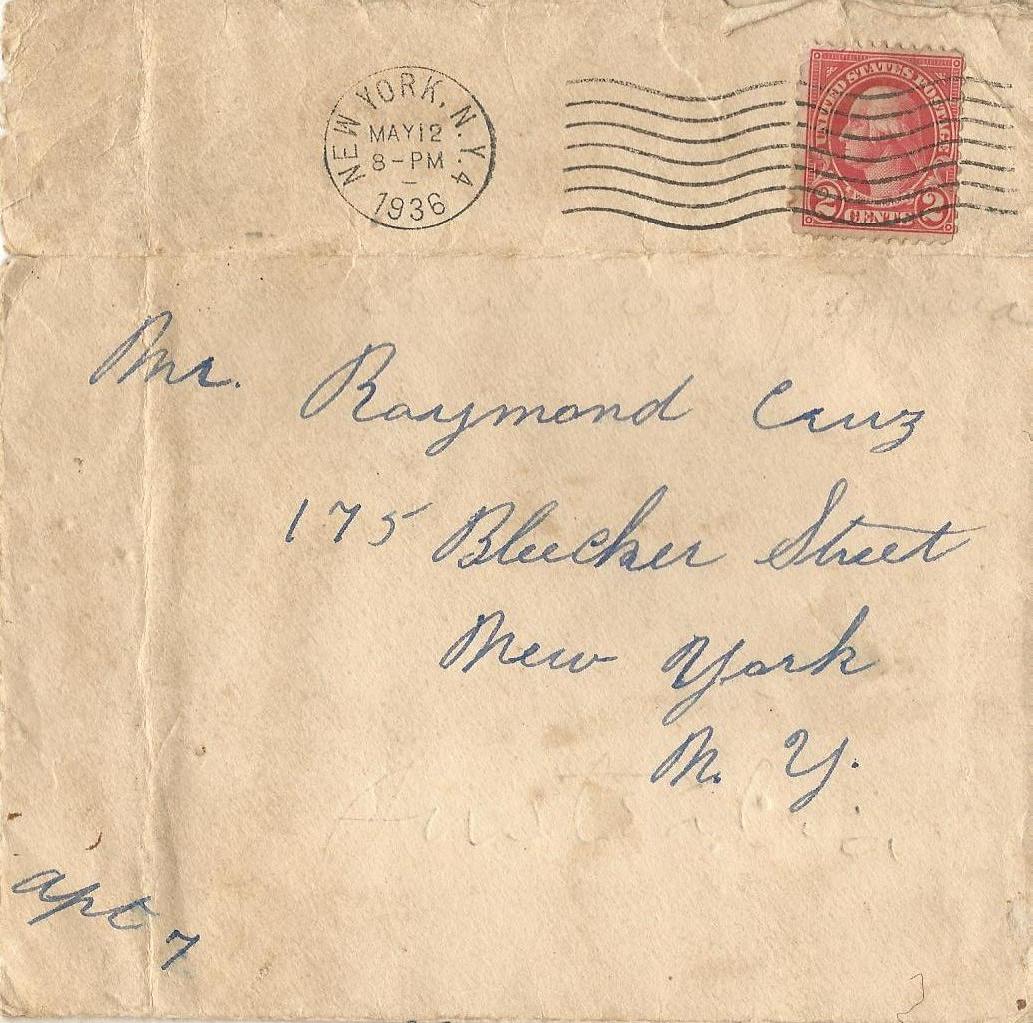 NEW YORK, N.Y. 4
MAY 12
8-PM
1936
UNITED STATES POSTAGE
2 CENTS 2
Mr. Raymond Cruz
175 Bleecker Street
New York
N. Y.
Australia
apt 7